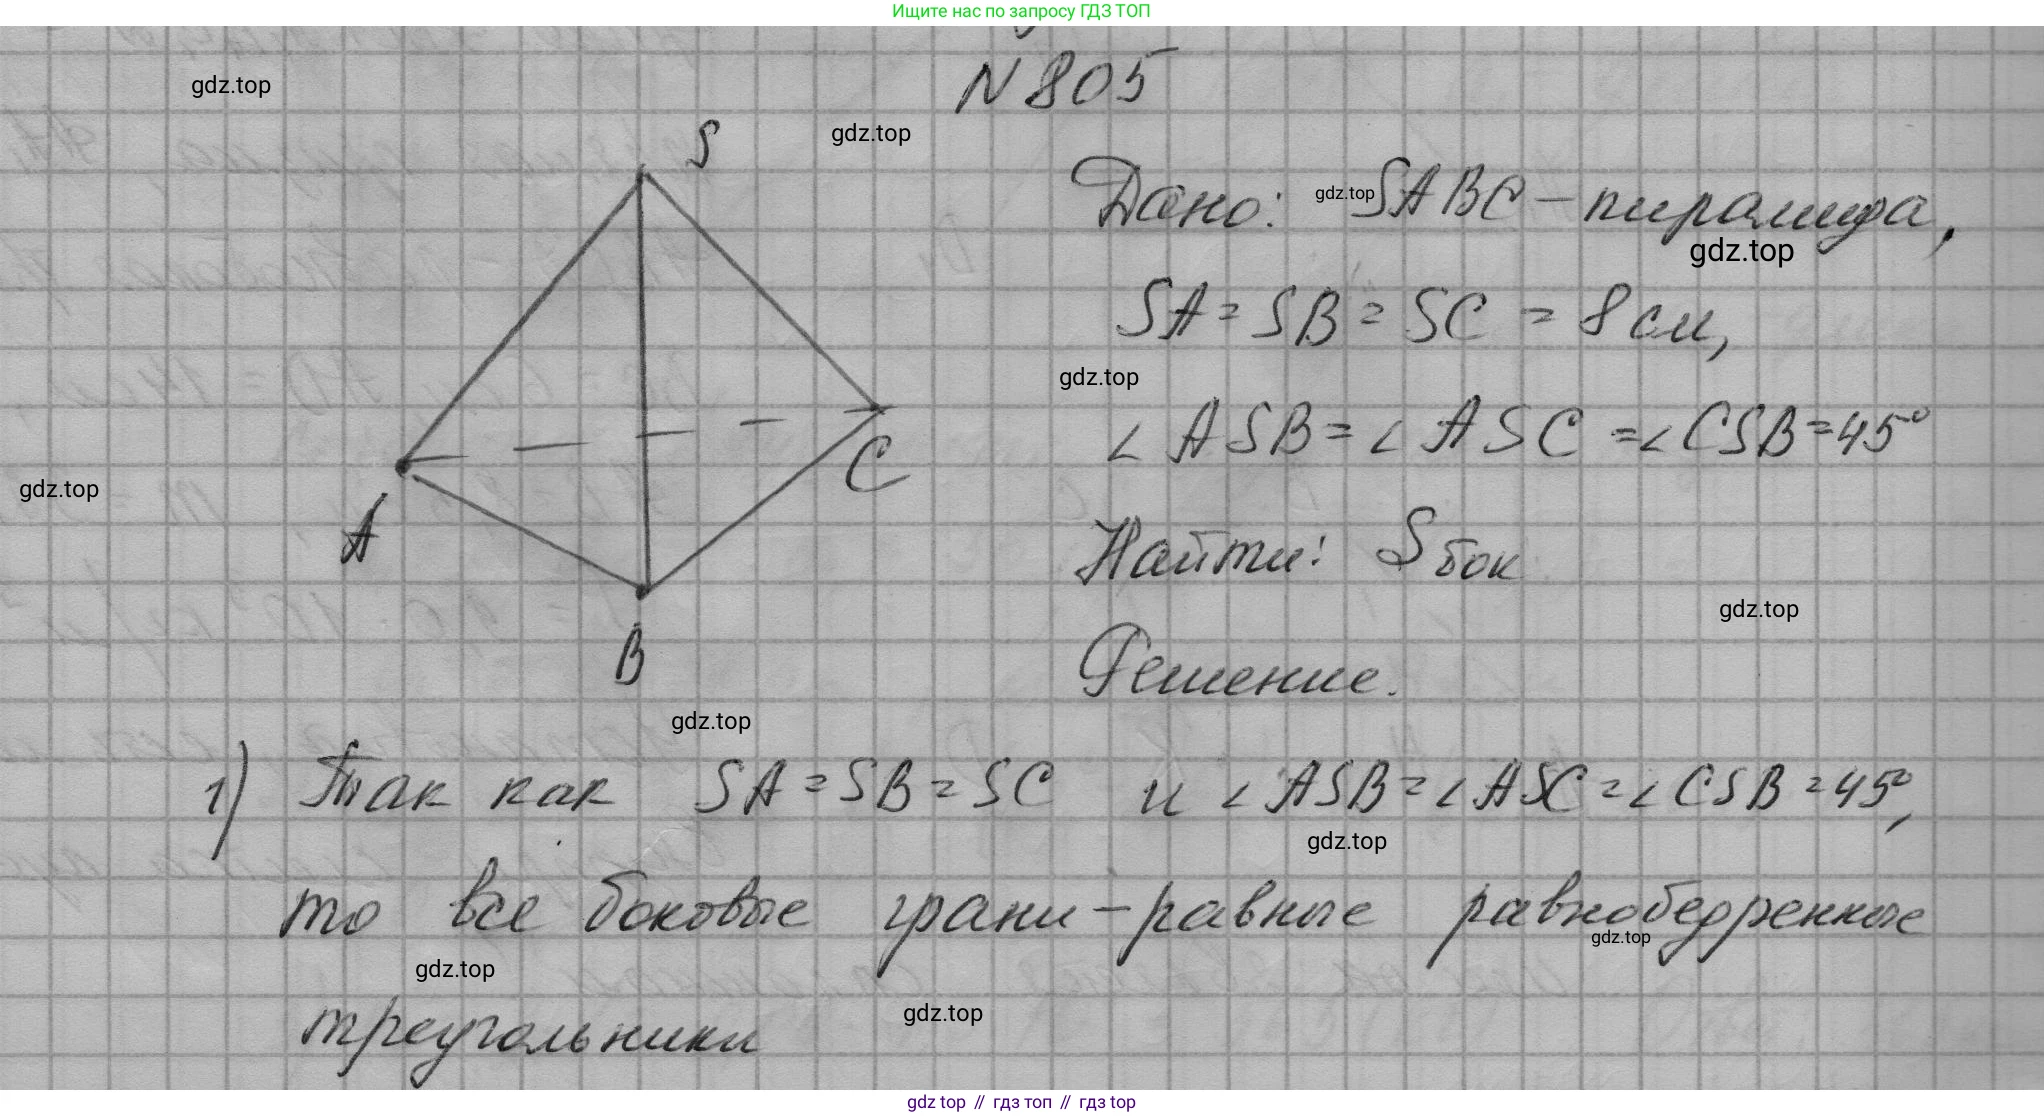 Ищите нас по запросу ГДЗ ТОП
N 805
gdz.top
S
gdz.top
Дано: SABC - пирамида,
gdz.top
gdz.top
SA = SB = SC = 8 см,
gdz.top
∠ ASB = ∠ ASC = ∠ CSB = 45°
C
gdz.top
A
Найти: Sбок
gdz.top
B
Решение.
gdz.top
1) Так как SA = SB = SC и ∠ ASB = ∠ ASC = ∠ CSB = 45°,
gdz.top
то все боковые грани - равные равнобедренные
gdz.top
gdz.top
gdz.top
треугольники
gdz top // гдз топ // gdz top